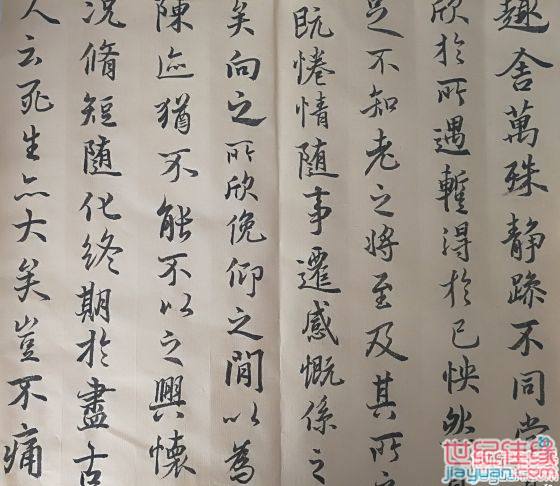 趣舍萬殊静躁不同當
欣於所遇暫得於己怏然
足不知老之將至及其所
既惓情随事遷感慨係之
矣向之所欣俛仰之閒以為
陳迹猶不能不以之興懷
况脩短随化終期於盡古
人云死生亦大矣豈不痛
世纪佳缘
jiayuan.com